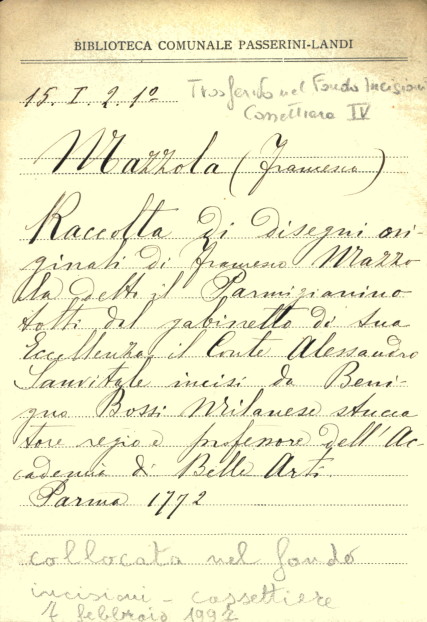 BIBLIOTECA COMUNALE PASSERINI-LANDI
15. I. 2. 1º Trasferito nel Fondo Incisioni
Cassettiera IV
Mazzola (Francesco)
Raccolta di disegni ori-
ginali di Francesco Mazzo
la detto il Parmigianino
tolti dal gabinetto di sua
Eccellenza il Conte Alessandro
Sanvitale incisi da Beni-
gno Bossi Milanese stucca
tore regio e professore dell'Ac-
cademia di Belle Arti.
Parma 1772
collocata nel fondo
incisioni - cassettiere
7 febbraio 1992